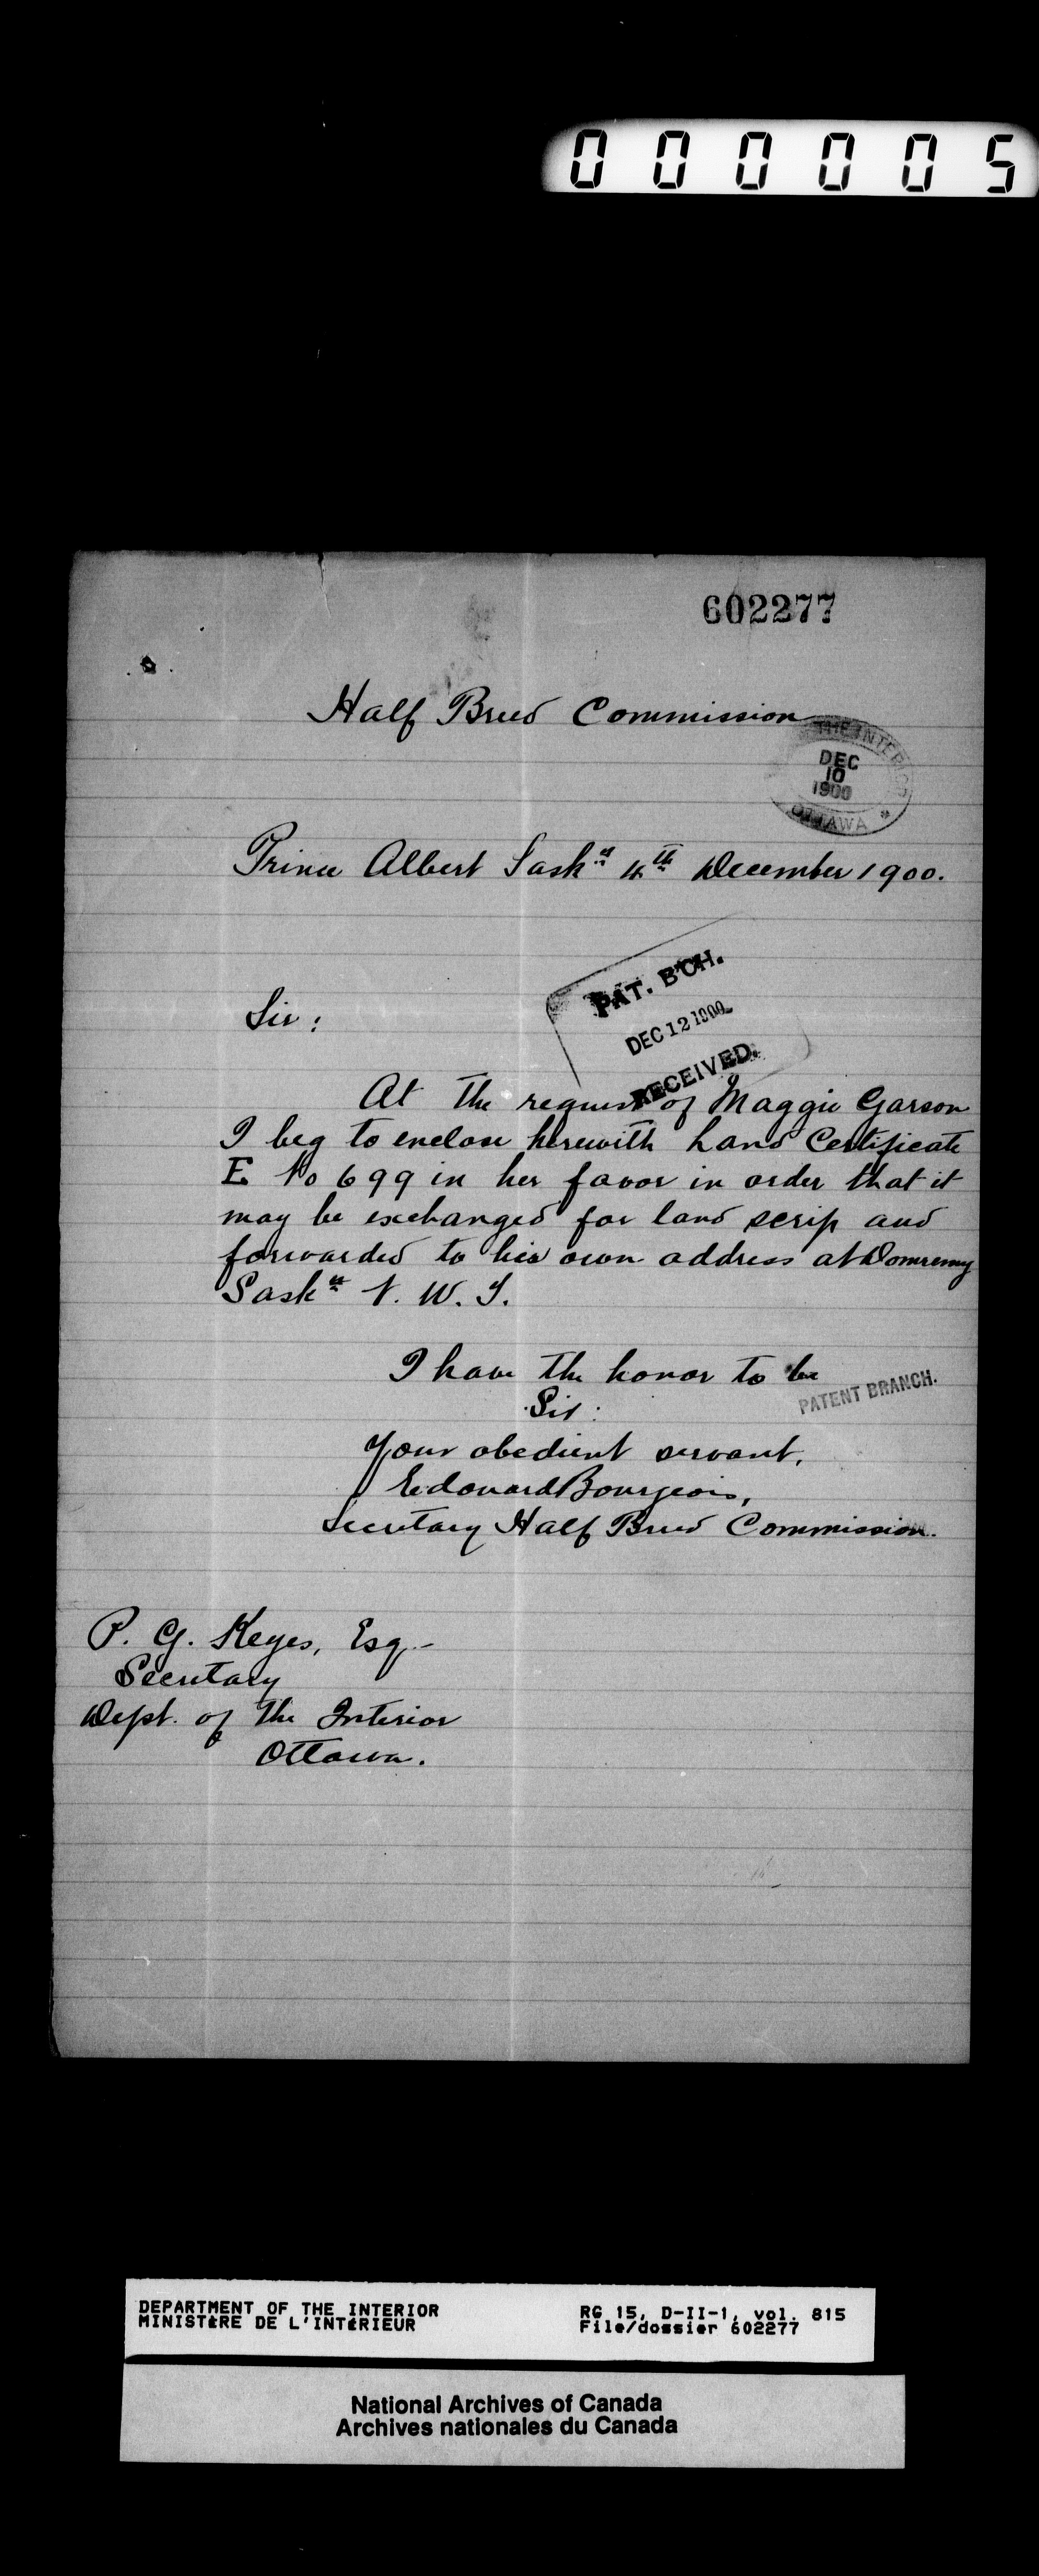 000005
602277
Half Breed Commission
THE INTERIOR
DEC
10
1900
OTTAWA *
Prince Albert Saskn 4th December 1900.
PAT. B'CH.
DEC 12 1900
RECEIVED.
Sir:
At the request of Maggie Garson
I beg to enclose herewith Land Certificate
E No 699 in her favor in order that it
may be exchanged for land scrip and
forwarded to his own address at Domremy
Saskn N. W. T.
I have the honor to be
PATENT BRANCH.
Sir:
Your obedient servant,
Edouard Bourgeois,
Secretary Half Breed Commission.
P. G. Keyes, Esq.
Secretary
Dept. of the Interior
Ottawa.
DEPARTMENT OF THE INTERIOR
MINISTÈRE DE L'INTÉRIEUR
RG 15, D-II-1, vol. 815
File/dossier 602277
National Archives of Canada
Archives nationales du Canada